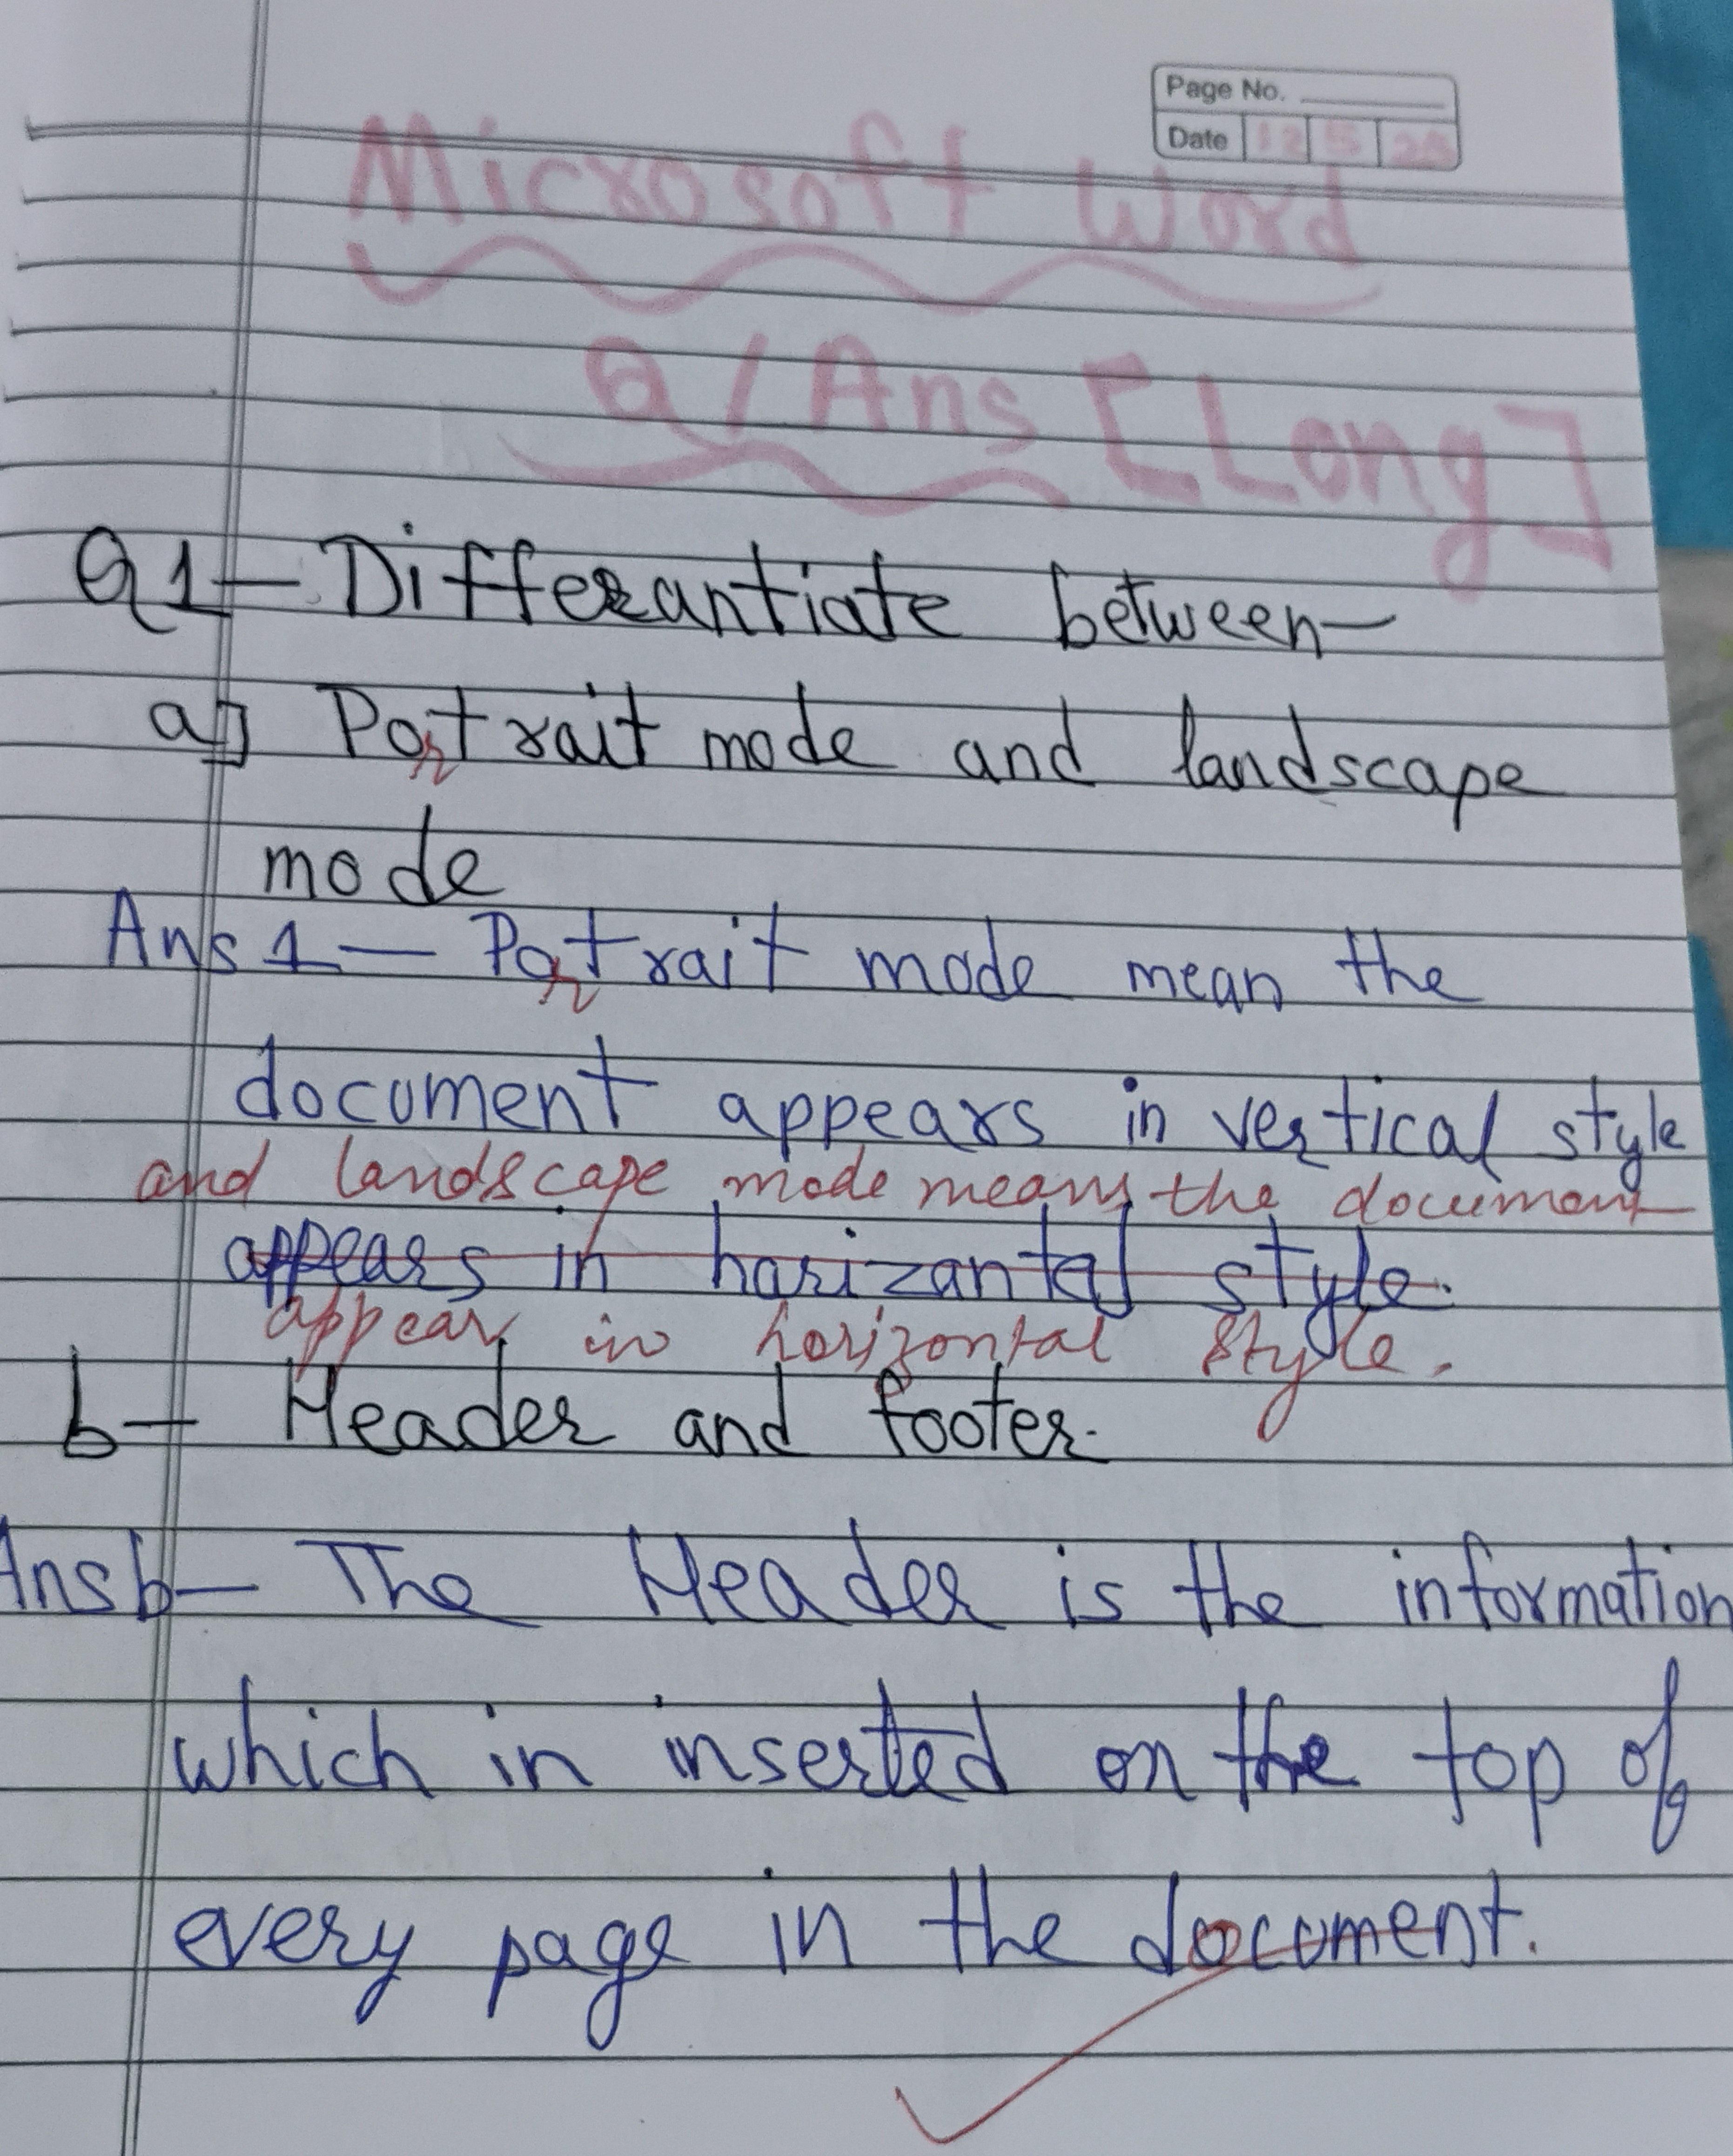 Page No.
Date 12 5
Microsoft Word
Q/Ans [Long]
Q1- Differantiate between-
a] Portrait mode and landscape
mode
Ans 1- Portrait mode mean the
document appears in vertical style
and landscape mode means the document
appears in harizantal style.
appear in horizontal style.
b- Header and footer.
Ans b- The Header is the information
which in inserted on the top of
every page in the document.